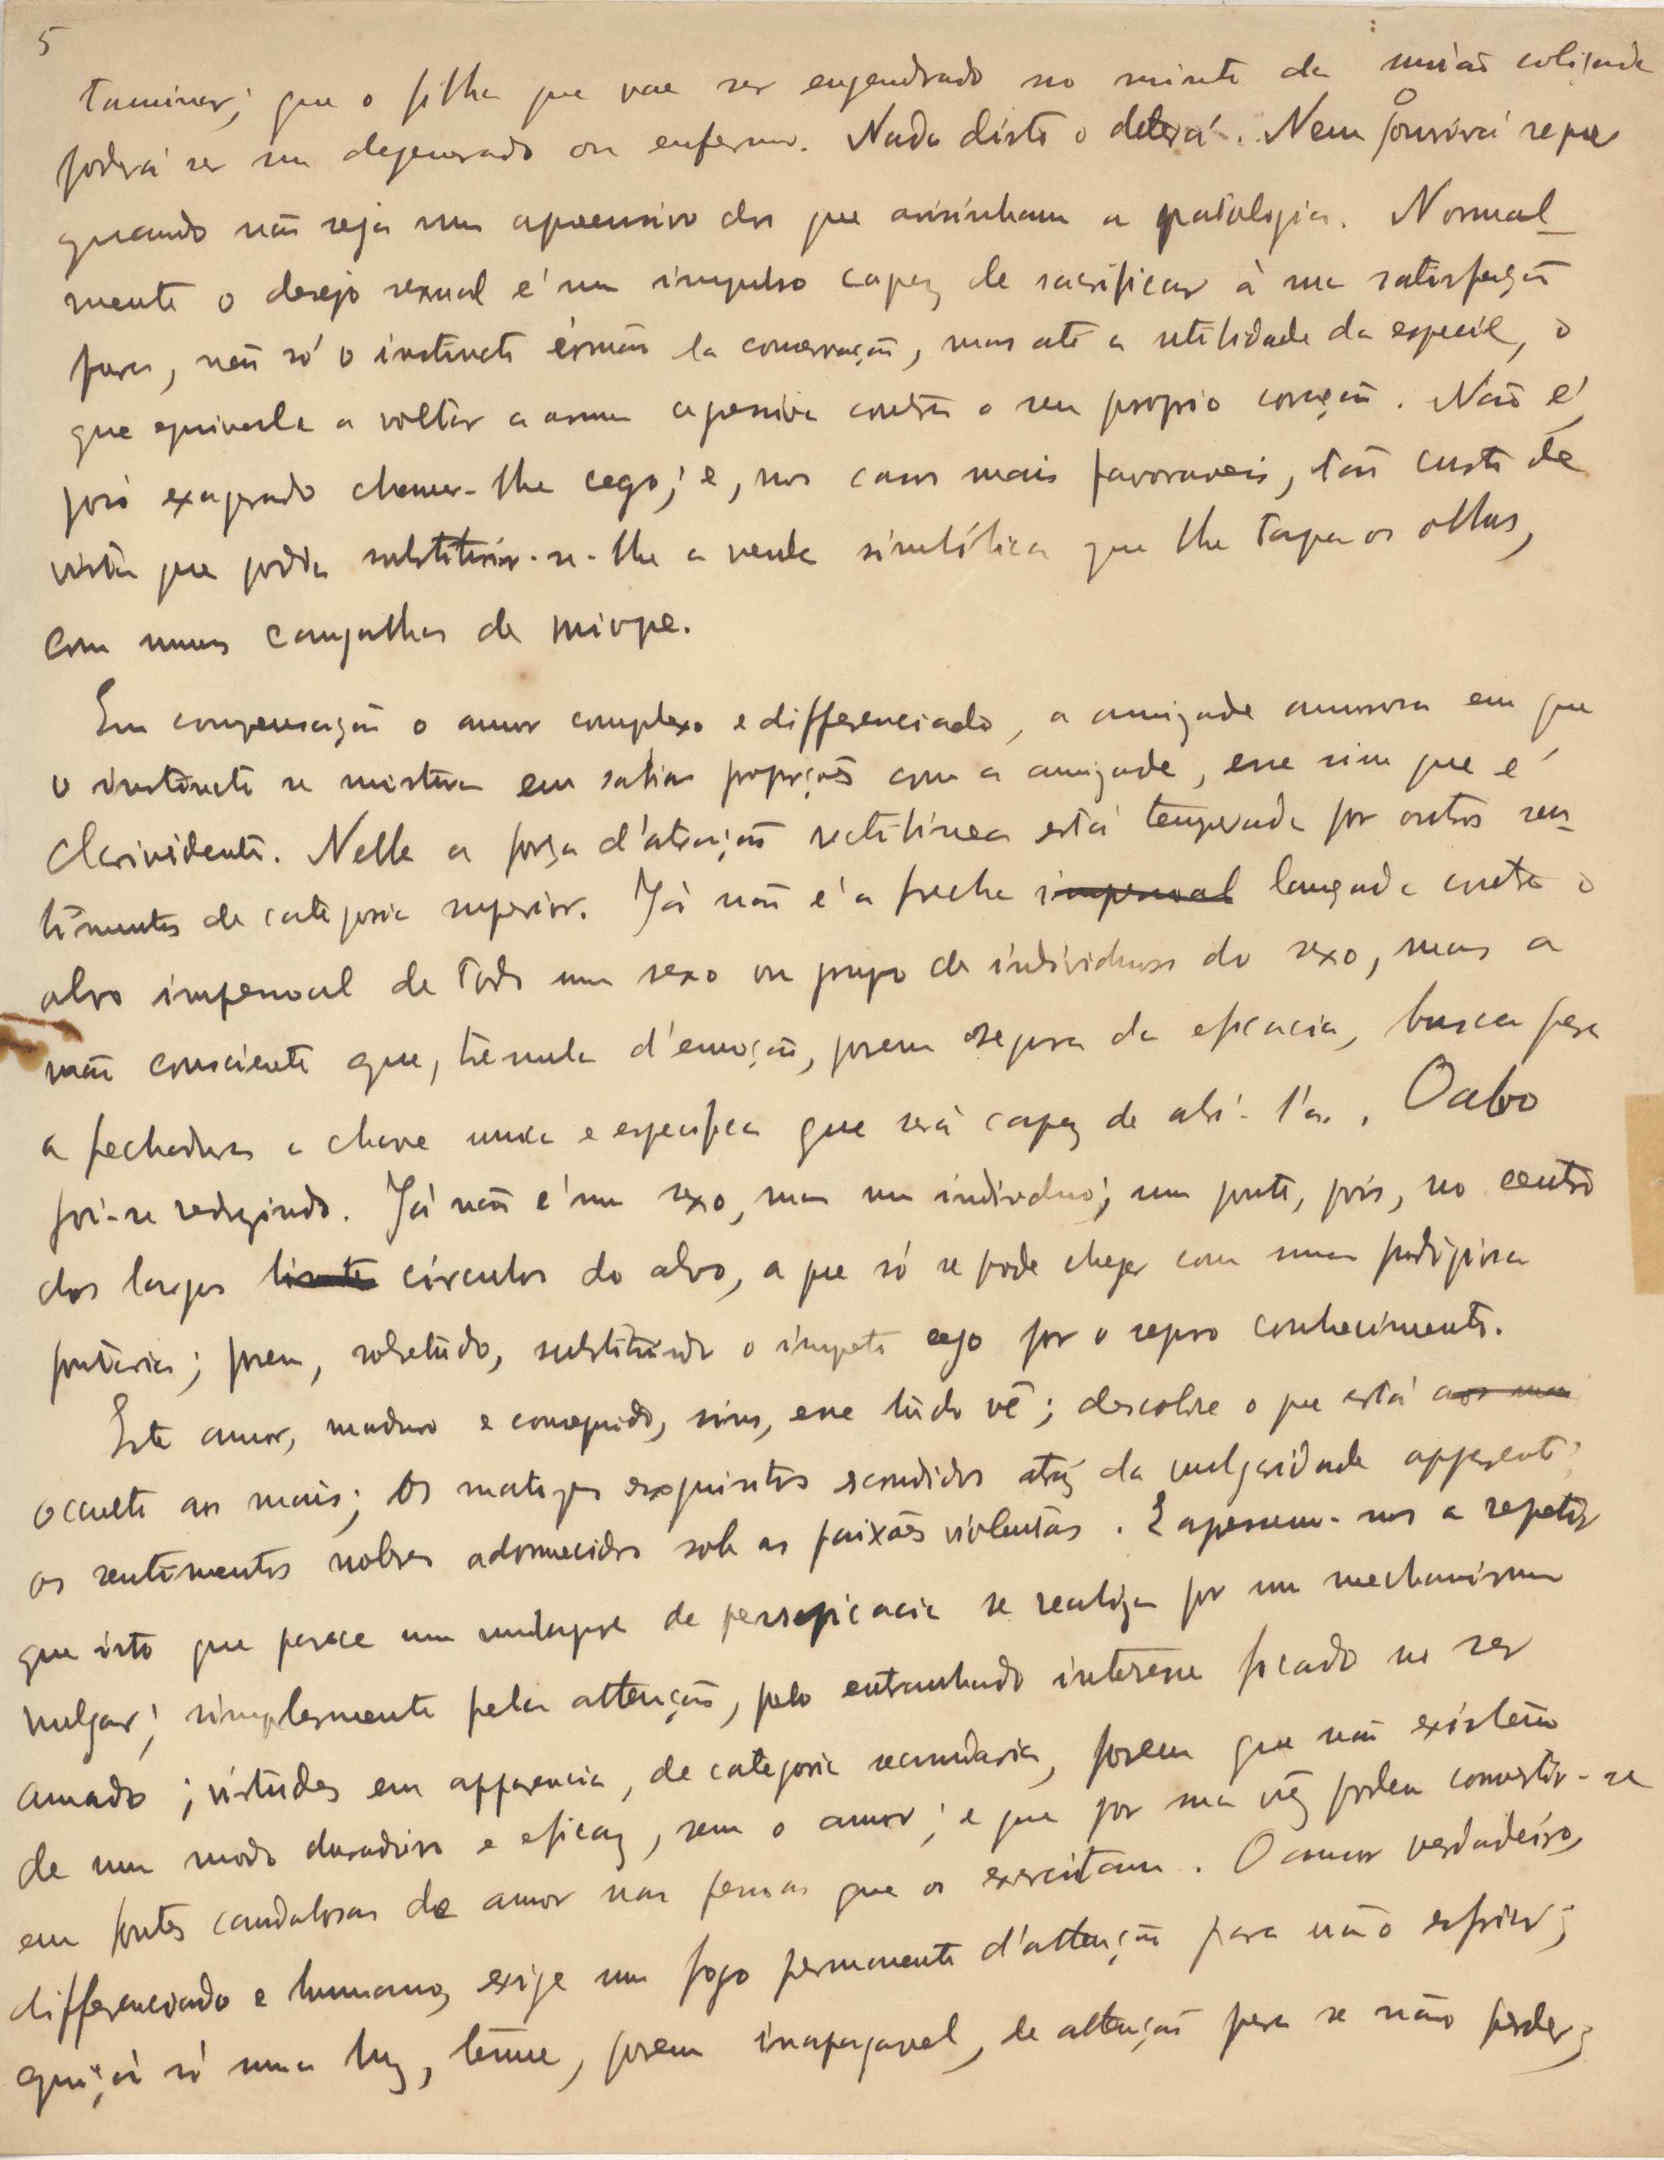 5
taminar; que o filho que vae ser engendrado no minuto da união cobiçada
poderá ser um degenerado ou enfermo. Nada disto o deterá. Nem o ouvirá sequer
quando não seja um apreensivo dos que avisinham a patologia. Normal-
mente o desejo sexual é um impulso capaz de sacrificar á sua satisfação
pura, não só o instincto érmão da conservação, mas até a utilidade da especie, o
que equivale a voltar a arma agressiva contra o seu proprio coração. Não é,
pois exagerado chamar-lhe cego; e, nos casos mais favoraveis, tão curto de
vista que podia substituir-se-lhe a venda simbólica que lhe tapa os olhos,
com umas cangalhas de miope.
Em compensação o amor complexo e differenciado, a amizade amorosa em que
o instincto se mistura em sabias proporções com a amizade, esse sim que é
clarividente. Nelle a força d'atração rectilinea está temperada por outros sen-
timentos de categoria superior. Já não é a frecha impessoal lançada contra o
alvo impessoal de todo um sexo ou grupo de individuos do sexo, mas a
mão consciente que, trémula d'emoção, porem segura da eficacia, busca para
a fechadura a chave unica e especifica que será capaz de abri-l'a. O alvo
foi-se reduzindo. Já não é um sexo, mas um individuo; um ponto, pois, no centro
dos largos circulos do alvo, a que só se pode chegar com uma prodigiosa
pontaria; porem, sobretudo, substituindo o impeto cego por o seguro conhecimento.
Este amor, maduro e conseguido, sim, esse tudo vê; descobre o que está aos mais
occulto aos mais; os matizes exquisitos escondidos atraz da vulgaridade apparente;
os sentimentos nobres adormecidos sob as paixões violentas. E apressemo-nos a repetir
que isto que parece um milagre de perspicacia se realiza por um mechanismo
vulgar; simplesmente pela attenção, pelo entranhado interesse focado no ser
amado; virtudes em apparencia, de categoria secundaria, porem que não existem
de um modo duradoiro e eficaz, sem o amor; e que por sua vez podem convertir-se
em fontes caudalosas de amor nas pessoas que os exercitam. O amor verdadeiro,
differenciado e humano, exige um fogo permanente d'attenção para não esfriar;
quiçá só uma luz, ténue, porem inapagavel, de attenção para se não perder;